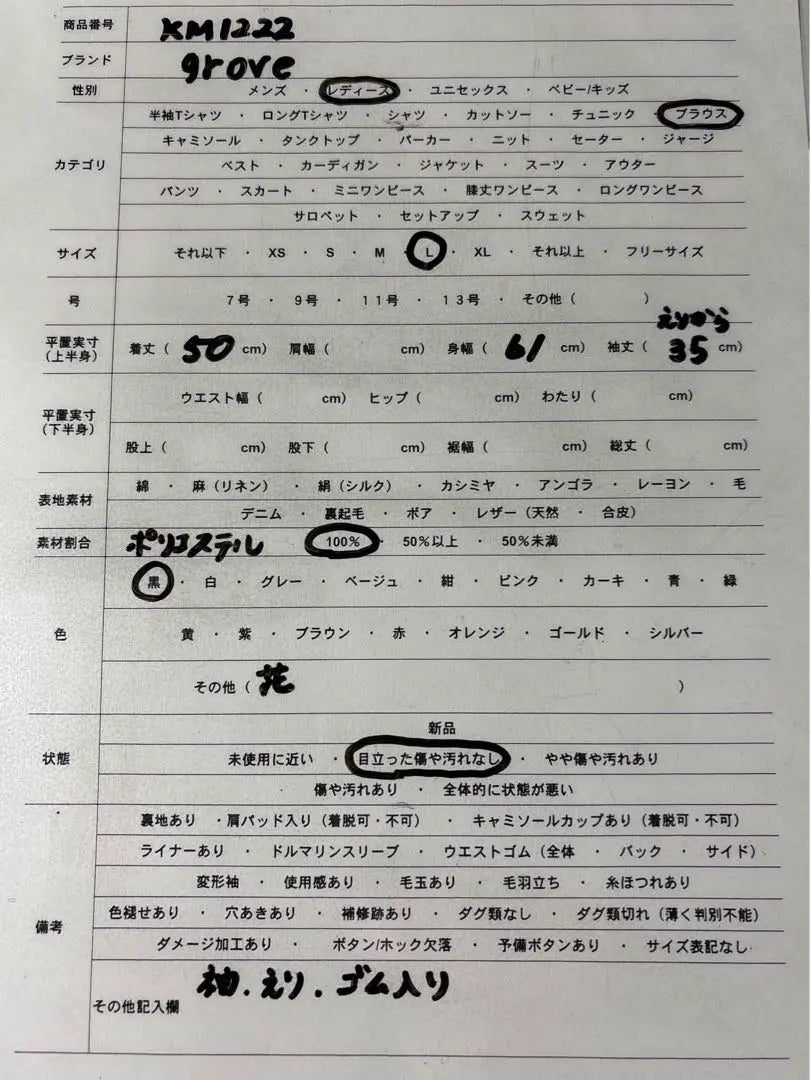 商品番号 KM1222
ブランド grove
性別 メンズ ・ レディース ・ ユニセックス ・ ベビー/キッズ
半袖Tシャツ ・ ロングTシャツ ・ シャツ ・ カットソー ・ チュニック ・ ブラウス
キャミソール ・ タンクトップ ・ パーカー ・ ニット ・ セーター ・ ジャージ
カテゴリ ベスト ・ カーディガン ・ ジャケット ・ スーツ ・ アウター
パンツ ・ スカート ・ ミニワンピース ・ 膝丈ワンピース ・ ロングワンピース
サロペット ・ セットアップ ・ スウェット
サイズ それ以下 ・ XS ・ S ・ M ・ L ・ XL ・ それ以上 ・ フリーサイズ
号 7号 ・ 9号 ・ 11号 ・ 13号 ・ その他 ( )
えりから
平置実寸 (上半身) 着丈 ( 50 cm) 肩幅 ( cm) 身幅 ( 61 cm) 袖丈 ( 35 cm)
平置実寸 (下半身) ウエスト幅 ( cm) ヒップ ( cm) わたり ( cm)
股上 ( cm) 股下 ( cm) 裾幅 ( cm) 総丈 ( cm)
表地素材 綿 ・ 麻(リネン) ・ 絹(シルク) ・ カシミヤ ・ アンゴラ ・ レーヨン ・ 毛
デニム ・ 裏起毛 ・ ボア ・ レザー(天然 ・ 合皮)
素材割合 ポリエステル 100% ・ 50%以上 ・ 50%未満
黒 ・ 白 ・ グレー ・ ベージュ ・ 紺 ・ ピンク ・ カーキ ・ 青 ・ 緑
色 黄 ・ 紫 ・ ブラウン ・ 赤 ・ オレンジ ・ ゴールド ・ シルバー
その他 ( 花 )
新品
状態 未使用に近い ・ 目立った傷や汚れなし ・ やや傷や汚れあり
傷や汚れあり ・ 全体的に状態が悪い
裏地あり ・肩パッド入り(着脱可・不可) ・ キャミソールカップあり(着脱可・不可)
ライナーあり ・ ドルマリンスリーブ ・ ウエストゴム(全体 ・ バック ・ サイド)
変形袖 ・ 使用感あり ・ 毛玉あり ・ 毛羽立ち ・ 糸ほつれあり
備考 色褪せあり ・ 穴あきあり ・ 補修跡あり ・ タグ類なし ・ タグ類切れ(薄く判別不能)
ダメージ加工あり ・ ボタン/ホック欠落 ・ 予備ボタンあり ・ サイズ表記なし
その他記入欄 袖.えり.ゴム入り